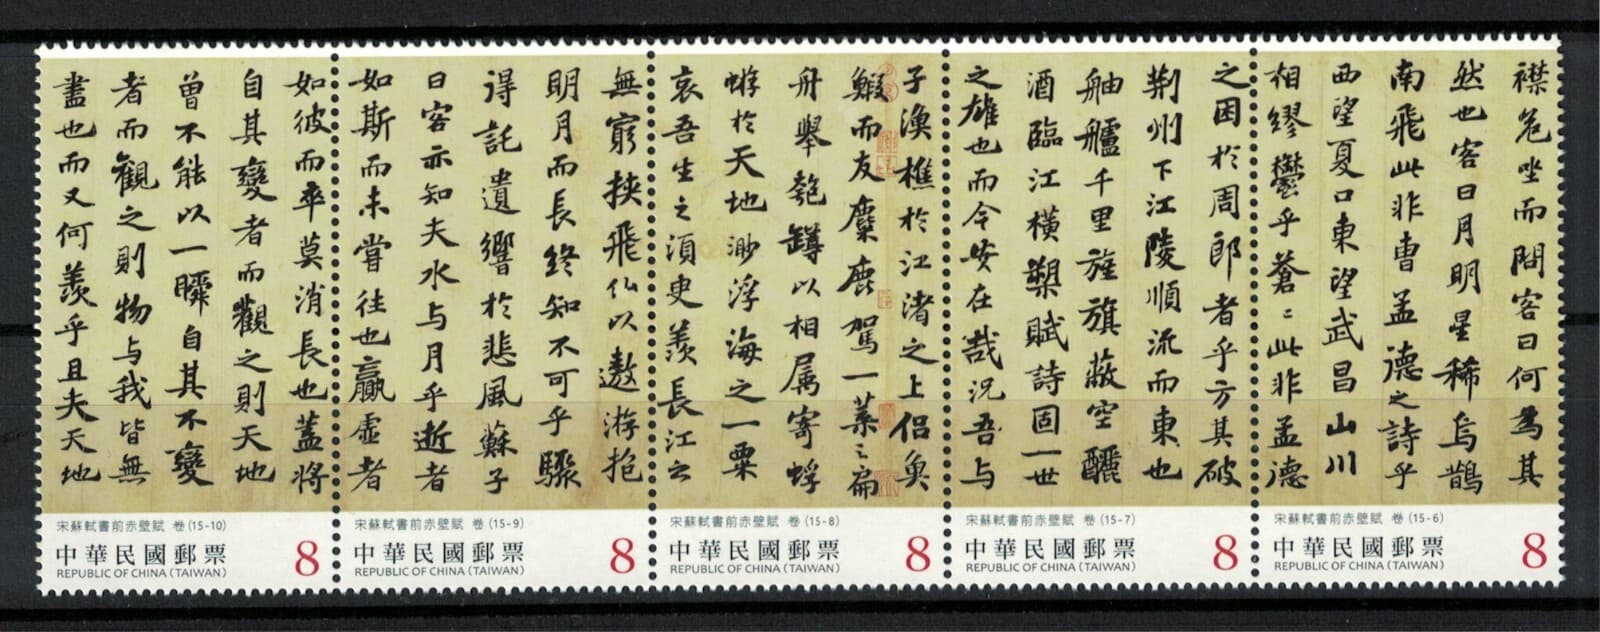 襟危坐而問客曰何為其
然也客曰月明星稀烏鵲
南飛此非曹孟德之詩乎
西望夏口東望武昌山川
相繆鬱乎蒼〻此非孟德
宋蘇軾書前赤壁賦 卷 (15-6)
中華民國郵票
REPUBLIC OF CHINA (TAIWAN)
8
之困於周郎者乎方其破
荊州下江陵順流而東也
舳艫千里旌旗蔽空釃
酒臨江橫槊賦詩固一世
之雄也而今安在哉況吾与
宋蘇軾書前赤壁賦 卷 (15-7)
中華民國郵票
REPUBLIC OF CHINA (TAIWAN)
8
子漁樵於江渚之上侶魚
鰕而友麋鹿駕一葉之扁
舟舉匏罇以相屬寄蜉
蝣於天地渺浮海之一粟
哀吾生之須臾羨長江之
宋蘇軾書前赤壁賦 卷 (15-8)
中華民國郵票
REPUBLIC OF CHINA (TAIWAN)
8
無窮挾飛仙以遨游抱
明月而長終知不可乎驟
得託遺響於悲風蘇子
曰客亦知夫水与月乎逝者
如斯而未嘗往也贏虛者
宋蘇軾書前赤壁賦 卷 (15-9)
中華民國郵票
REPUBLIC OF CHINA (TAIWAN)
8
如彼而卒莫消長也蓋將
自其變者而觀之則天地
曾不能以一瞬自其不變
者而觀之則物与我皆無
盡也而又何羨乎且夫天地
宋蘇軾書前赤壁賦 卷 (15-10)
中華民國郵票
REPUBLIC OF CHINA (TAIWAN)
8